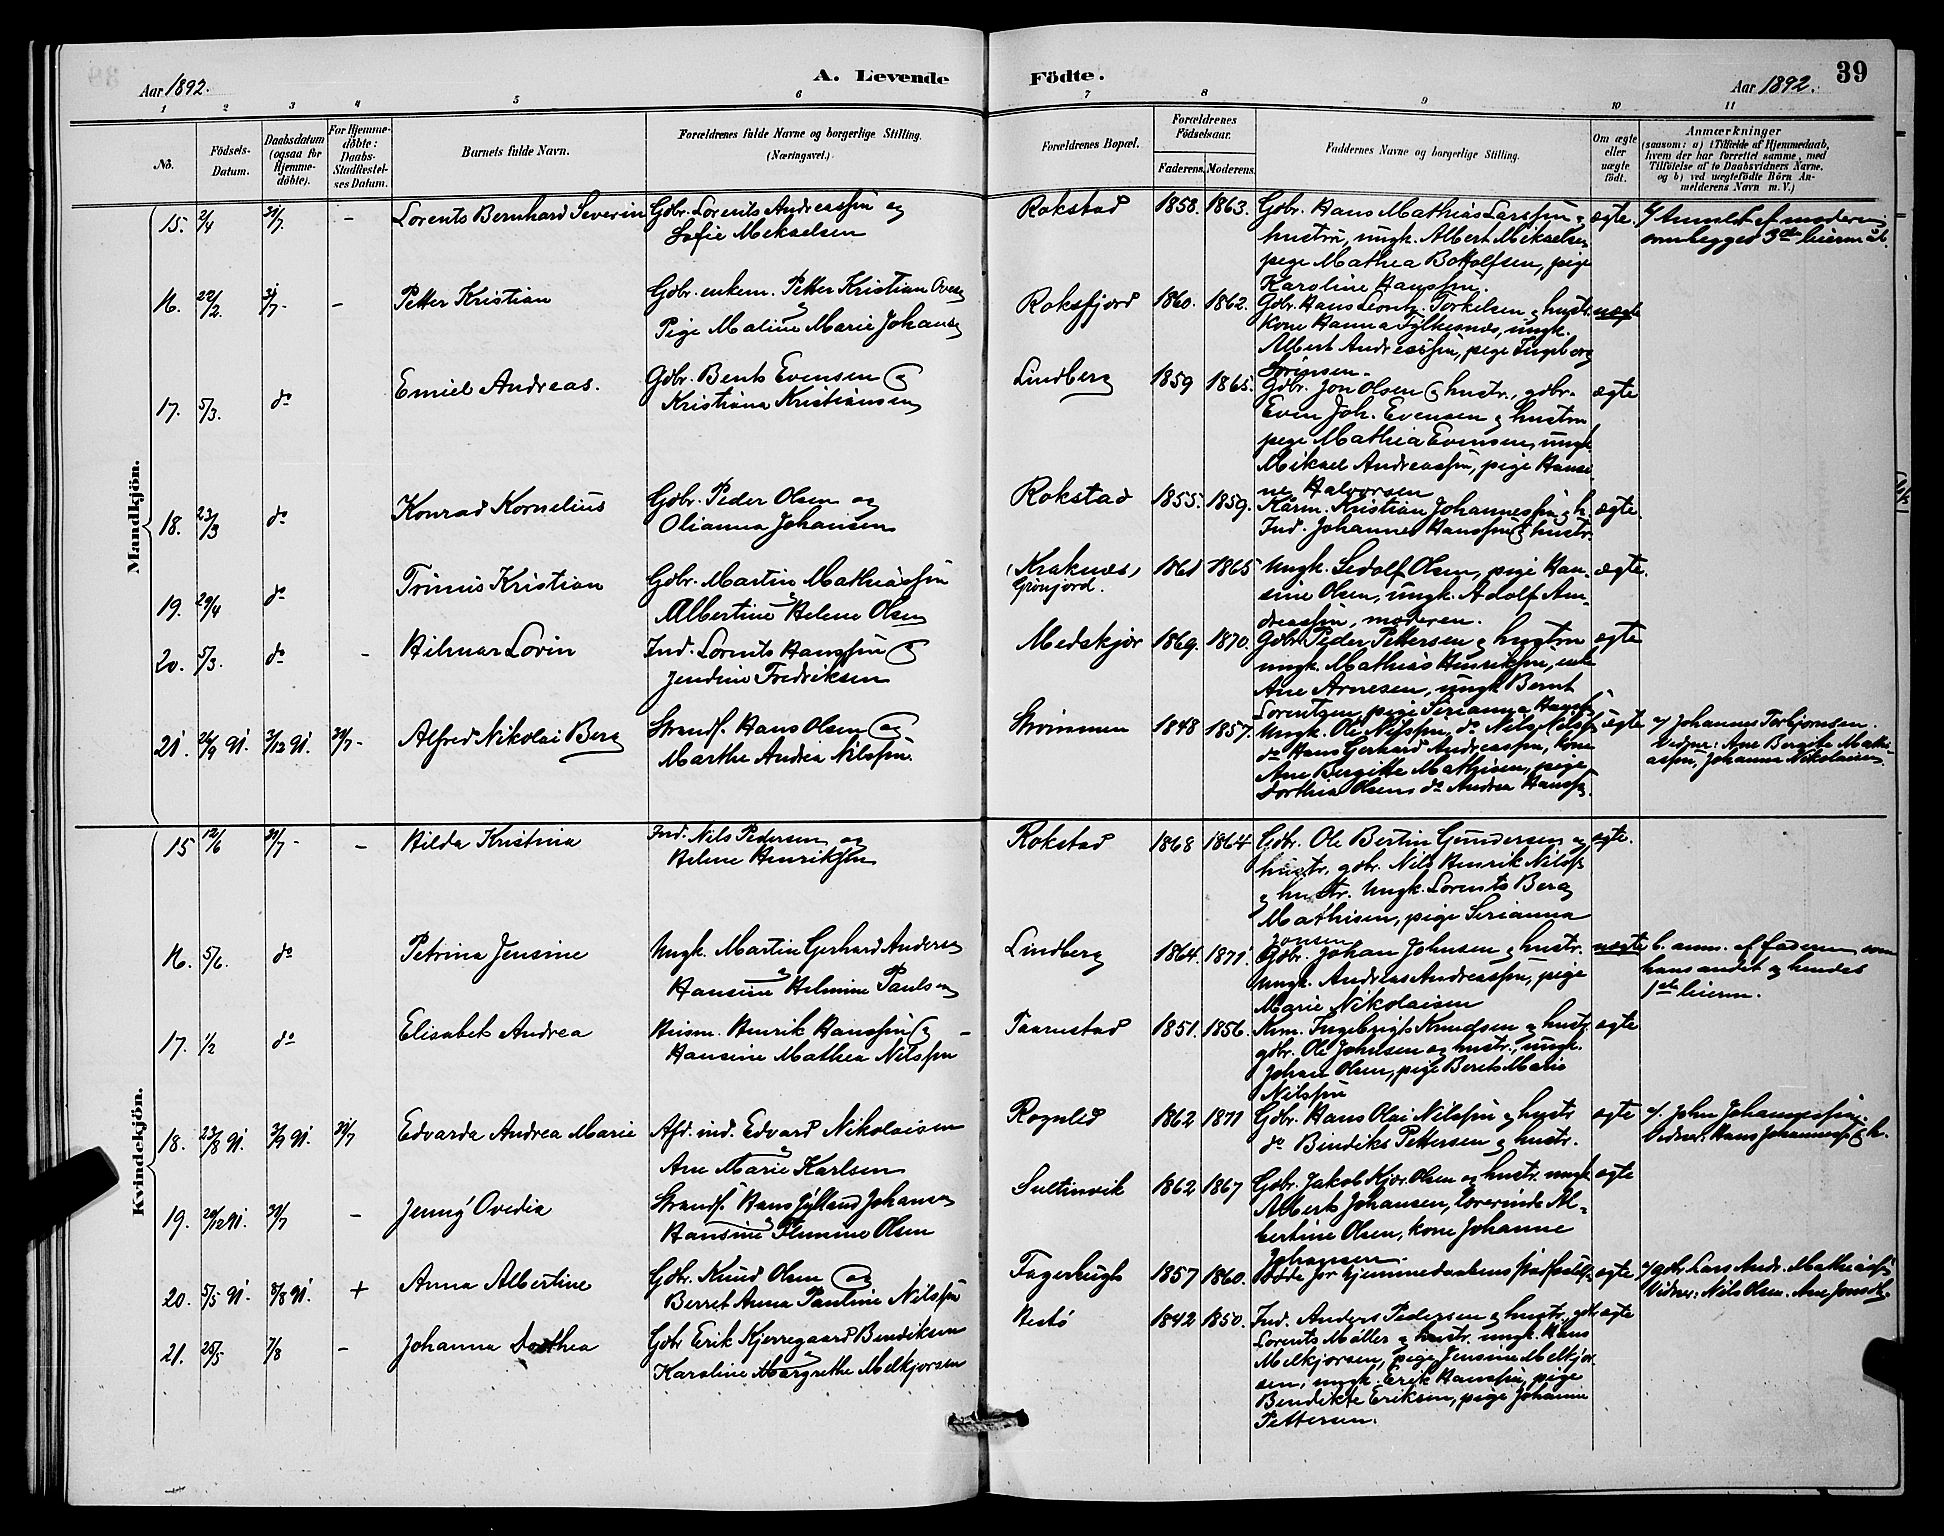 39
Aar 1892.
A. Levende Födte.
Aar 1892.
1 2 3 4 5 6 7 8 9 10 11
No.
Födsels-Datum.
Daabsdatum (ogsaa for Hjemme-döbte).
For Hjemme-döbte: Daabs-Stadfæstel-ses Datum.
Barnets fulde Navn.
Forældrenes fulde Navne og borgerlige Stilling. (Næringsvei.)
Forældrenes Bopæl.
Forældrenes Födselsaar.
Faderens. Moderens.
Faddernes Navne og borgerlige Stilling.
Om ægte eller uægte födt.
Anmærkninger
(saasom: a) i Tilfælde af Hjemmedaab,
hvem der har forrettet samme, med
Tilföielse af to Daabsvidners Navne,
og b) ved uægtefödte Börn An-
melderens Navn m. V.)
Mandkjön.
15. 2/4 31/7. - Lorents Bernhard Severin Gdbr. Lorents Andreassen og
Sofie Mekaelsen
Rokstad 1858. 1863. Gdbr. Hans Mathias Larssen & ægte.
hustru, ungk. Albert Mikaelsen,
pige Mathea Bottolfsen, pige
Karoline Hanssen.
Anmeldt af moderen
begges 3die leierm
16. 22/2. 31/7. - Petter Kristian Gdbr. enkem. Petter Kristian
& Pige Maline Marie Johans
Roksfjord 1860. 1862. Gdbr. Hans Torkelsen & hustr. uægte
Kone Hanna Fylkesnes, ungk.
Albert Andreassen, pige Ingeborg
Sörensen.
17. 5/3. do Emiel Andreas. Gdbr. Bent Evensen &
Kristiana Kristiansen
Lindberg 1859 1865. Gdbr. Jon Olsen & hustr., gdbr. ægte
Even Joh. Evensen & hustru
pige Mathea Evensen, ungk.
Mikael Andreassen, pige Hansi
ne Halvorsen
18. 23/3 do Konrad Kornelius Gdbr. Peder Olsen og
Olianna Johansen
Rokstad 1855. 1859. Kaarm. Kristian Johannessen & h. ægte.
Ind. Johannes Hanssen & hustr.
19. 29/4 do Trinus Kristian Gdbr. Martin Mathiassen
& Albertine Helene Olsen
(Kraknes) Grönjord. 1861 1865 Ungk. Sedolf Olsen, pige Han- ægte.
sine Olsen, ungk. Adolf An-
dreassen, moderen.
20. 5/3. do - Hilmar Lorin Ind. Lorents Hanssen &
Jendine Fredriksen
Medskjær 1869. 1870. Gdbr. Peder Pettersen & hustru ægte
ungk. Mathias Henriksen, enke
Ane Arnesen, ungk. Bernt
Lorentzen, pige Serianna Hanss.
21. 26/9 91. 3/12 91. 31/7 - Alfred Nikolai Berg Strands. Hans Olsen og
Marthe Andrea Nilssen.
Strömmen 1848 1857. Ungk. Ole Nilssen, do Nils Nilss. ægte
do Hans Gerhard Andreassen, kone
Ane Bergitte Mathisen, pige
Dorthea Olsen, do Andrea Hanss.
a/ Johannes Torbjörnsen.
Vidner: Ane Bergitte Mathi-
assen, Johanna Nikolaisen.
Kvindekjön.
15 12/6 31/7 - - Hilda Kristina Ind. Nils Pedersen og
Helene Henriksen
Rokstad 1868 1864 Gdbr. Ole Bertin Gundersen & ægte.
hustr., gdbr. Nils Henrik Nilss.
& hustr. Ungk. Lorents Berg
Mathisen, pige Serianna
Jonsen
16. 5/6. do Petrina Jensine Ungk. Martin Gerhard Anders
& Hansine Helmine Paulsen
Lindberg 1864. 1871. Gdbr. Johan Johnsen & hustr. uægte
Ungk. Andreas Andreassen, pige
Marie Nikolaisen
b. anm. af faderen som
hans andet & hendes
1ste leierm.
17. 1/2 do Elisabet Andrea Husm. Henrik Hanssen & -
Hansine Mathea Nilssen
Taarnstad 1851. 1856. Kvm. Ingebrigt Knudsen & hustr. ægte
gdbr. Ole Johnsen og hustr., ungk.
Johan Olsen, pige Beret Marie
Nilssen
18. 23/8 91. 3/9 91. 31/7 Edvarda Andrea Marie Afd. ind. Edvard Nikolaisen
& Ane Marie Karlsen
Rognlid 1862 1871 Gdbr. Hans Olai Nilssen & hustr. ægte
do Bendiks Pettersen & hustr.
a/. John Johannessen.
Vidner: Hans Johanness. & h.
19. 20/12 91. 31/7 - Jenny Ovedia Strands. Hans Jylland Johansen
& Hansine Olsen
Sultinvik 1862 1867 Gdbr. Jakob Kjör Olsen og hustr. ungk. ægte
Albert Johansen, lærerinde Al-
bertine Olsen, kone Johanne
Johansen.
20. 5/5 91. 8/8 91. + Anna Albertine Gdbr. Knud Olsen og
Berret Anna Pauline Nilssen
1857 1860. Döde för hjemmedaabens ægte
a/ gdbr. Lars Andr. Mathiass.
Vidner: Nils Olsen. Ane Jonsd.
21. 25/5 7/8 - Johanna Dorthea Gdbr. Erik Kjerregaard Bendiksen
& Karoline Margrethe Melkjorsen
1842 1850. Ind. Anders Pedersen & hustr. gdb. ægte
Lorents Möller & hustr. ungk. Hans
Melkjorsen, pige Jensine Melkjor
sen, ungk. Erik Hanssen, pige
Bendikte Eriksen, pige Johanne
Pettersen.